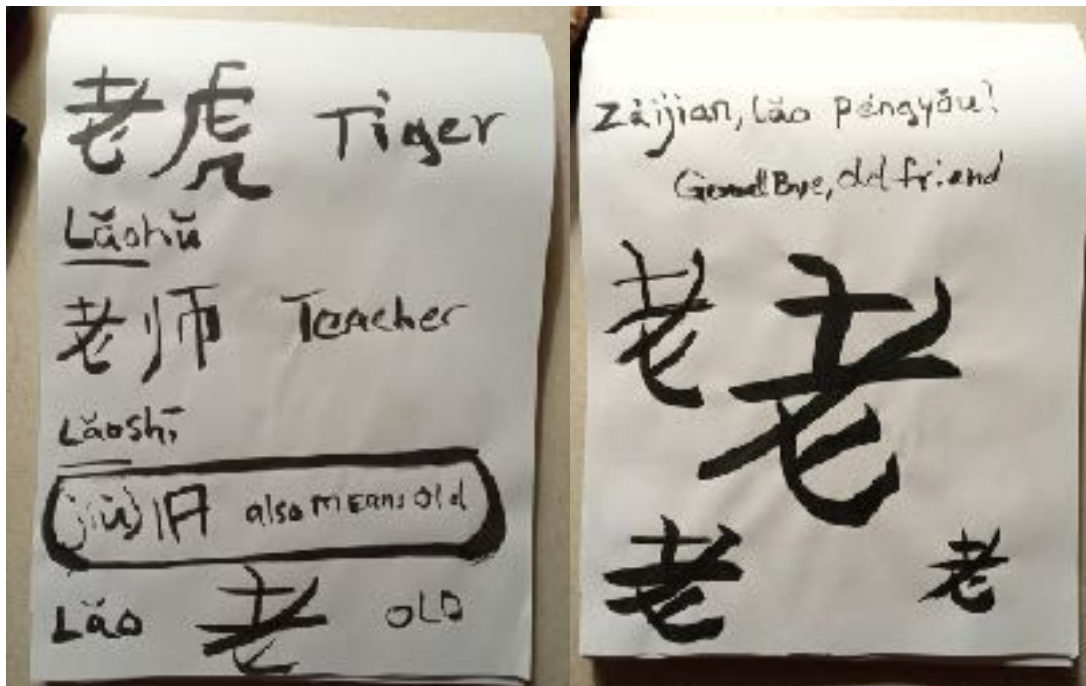 老虎 Tiger
Lǎohǔ
老师 Teacher
Lǎoshī
(jiù) 旧 also means old
Lǎo 老 OLD
Zàijian, lǎo péngyǒu!
GoodBye, old friend
老 老
老 老